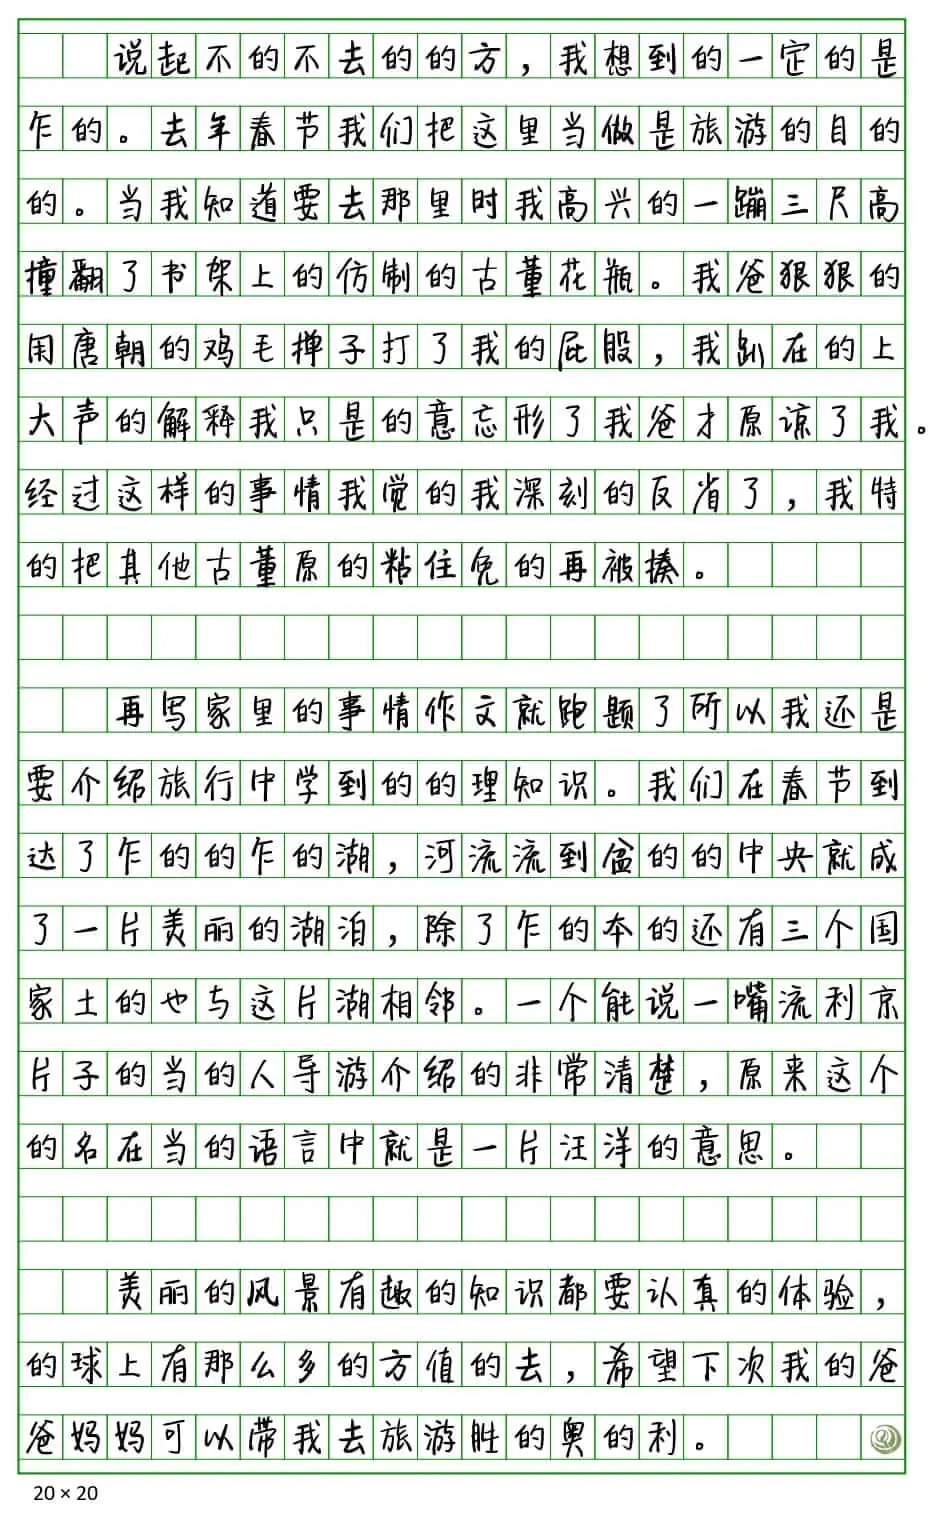 说起不的不去的的方，我想到的一定的是
乍的。去年春节我们把这里当做是旅游的目的
的。当我知道要去那里时我高兴的一蹦三尺高
撞翻了书架上的仿制的古董花瓶。我爸狠狠的
用唐朝的鸡毛掸子打了我的屁股，我趴在的上
大声的解释我只是的意忘形了我爸才原谅了我。
经过这样的事情我觉的我深刻的反省了，我特
的把其他古董原的粘住免的再被揍。
再写家里的事情作文就跑题了所以我还是
要介绍旅行中学到的的理知识。我们在春节到
达了乍的的乍的湖，河流流到盆的的中央就成
了一片美丽的湖泊，除了乍的本的还有三个国
家土的也与这片湖相邻。一个能说一嘴流利京
片子的当的人导游介绍的非常清楚，原来这个
的名在当的语言中就是一片汪洋的意思。
美丽的风景有趣的知识都要认真的体验，
的球上有那么多的方值的去，希望下次我的爸
爸妈妈可以带我去旅游胜的奥的利。
20 × 20